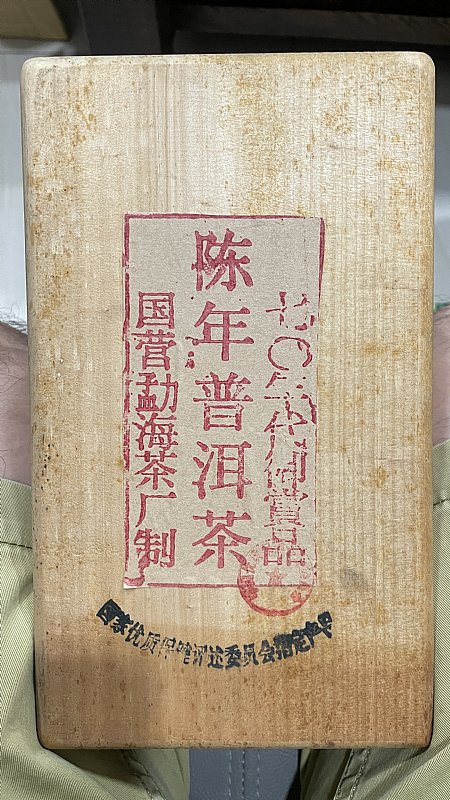 七〇年代御賞品
陈年普洱茶
国营勐海茶厂制
国家优质保健评述委员会指定产品